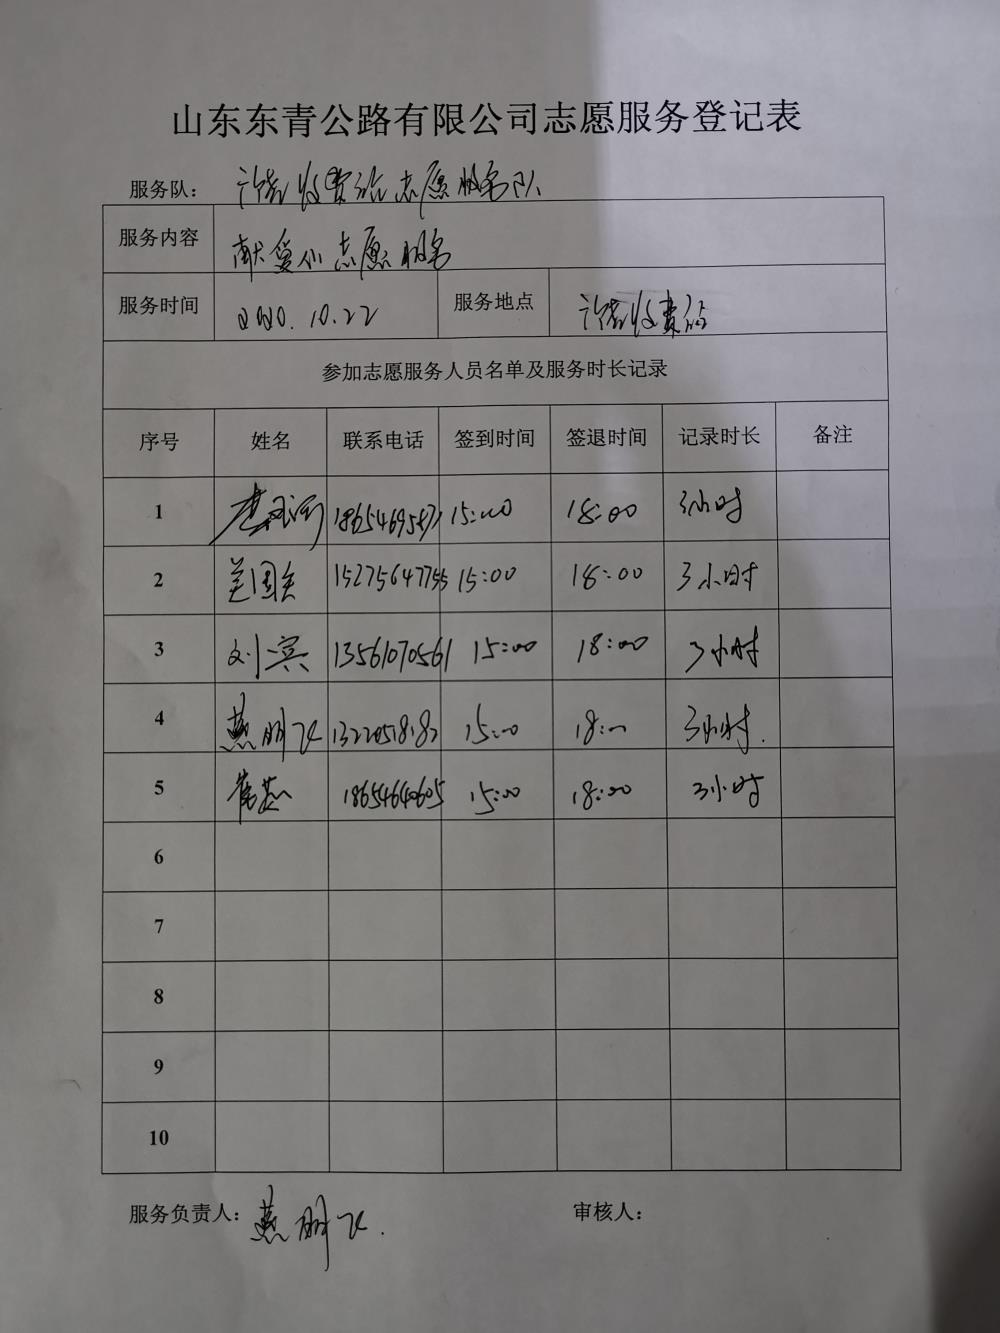 山东东青公路有限公司志愿服务登记表
服务队： 收费站志愿服务队
服务内容 献爱心志愿服务
服务时间 2020.10.22 服务地点 收费站
参加志愿服务人员名单及服务时长记录
序号 姓名 联系电话 签到时间 签退时间 记录时长 备注
1 15:00 18:00 3小时
2 15275647755 15:00 18:00 3小时
3 刘宾 13561070561 15:00 18:00 3小时
4 燕明飞 15:00 18:00 3小时.
5 崔燕 18654640605 15:00 18:00 3小时
6
7
8
9
10
服务负责人： 燕明飞. 审核人：